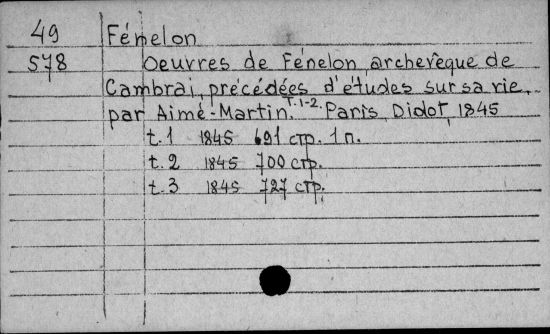 49 Fénelon
578 Oeuvres de Fénelon, archevêque de
Cambrai, précédées d'études sur sa vie,
par Aimé-Martin. T.1-2. Paris, Didot, 1845
t.1 1845 691 стр. 1 п.
t.2 1845 700 стр.
t.3 1845 727 стр.